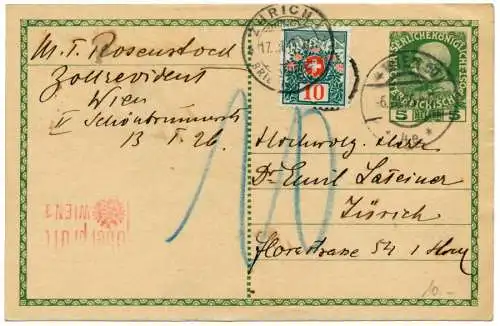 M. T. Rosenstock
Zollrevident
Wien
V Schönbrunnerstr
13 T. 26.
ZÜRICH
17.
BRIEF
10
KAISERLICHE KÖNIGLICHE
5 5
WIEN
6.
10
Hochwolg. Herr
Dr Emil Lateiner
Zürich
Florastrasse 54 I
WIEN
Überprüft
10.-